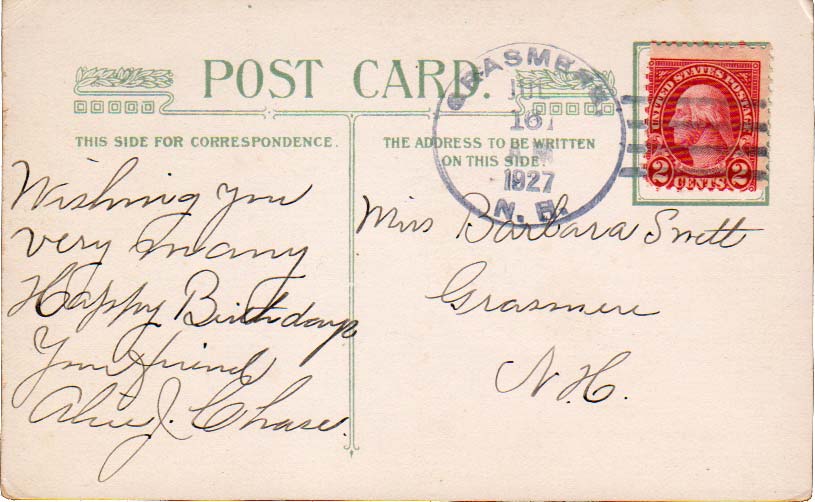 POST CARD.
THIS SIDE FOR CORRESPONDENCE.
THE ADDRESS TO BE WRITTEN
ON THIS SIDE.
GRASMERE
1927
N. H.
UNITED STATES POSTAGE
2 CENTS 2
Wishing you
very many
Happy Birthdays
Your friend
Alice J. Chase.
Miss Barbara Swett
Grasmere
N.H.